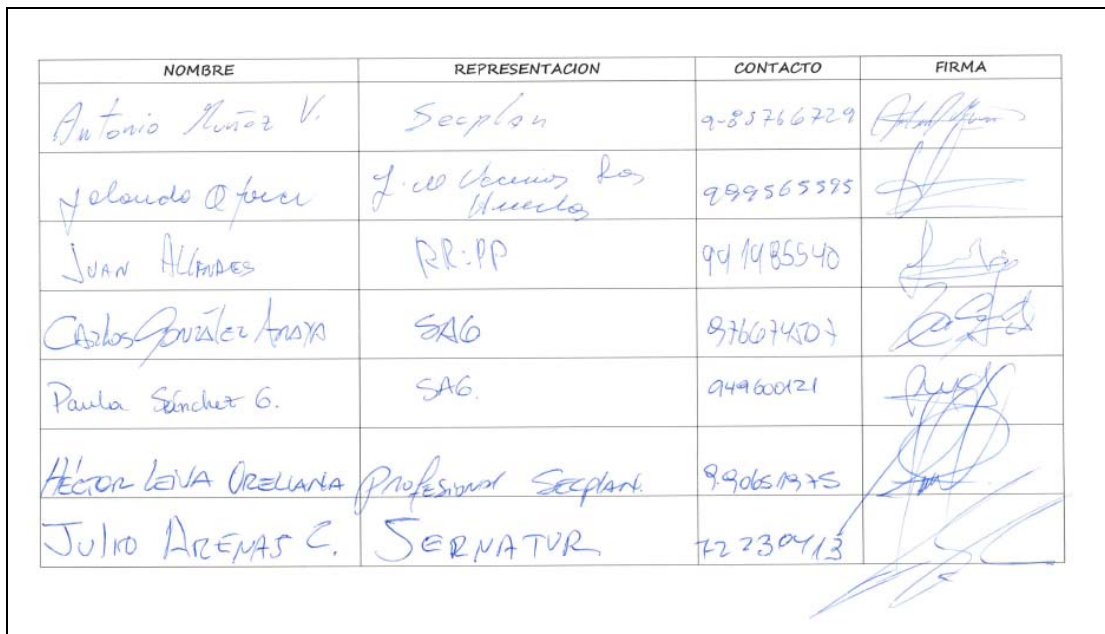 NOMBRE REPRESENTACION CONTACTO FIRMA
Antonio Muñoz V. Secplan 9-85766729
Vecinos Las
Huertas 999565595
JUAN ALLENDES RR:PP
CARLOS GONZÁLEZ ANAYA SAG 976674507
Paula Sánchez G. SAG. 949600121
HÉCTOR LEIVA ORELLANA PROFESIONAL SECPLAN.
JULIO ARENAS C. SERNATUR 72230413